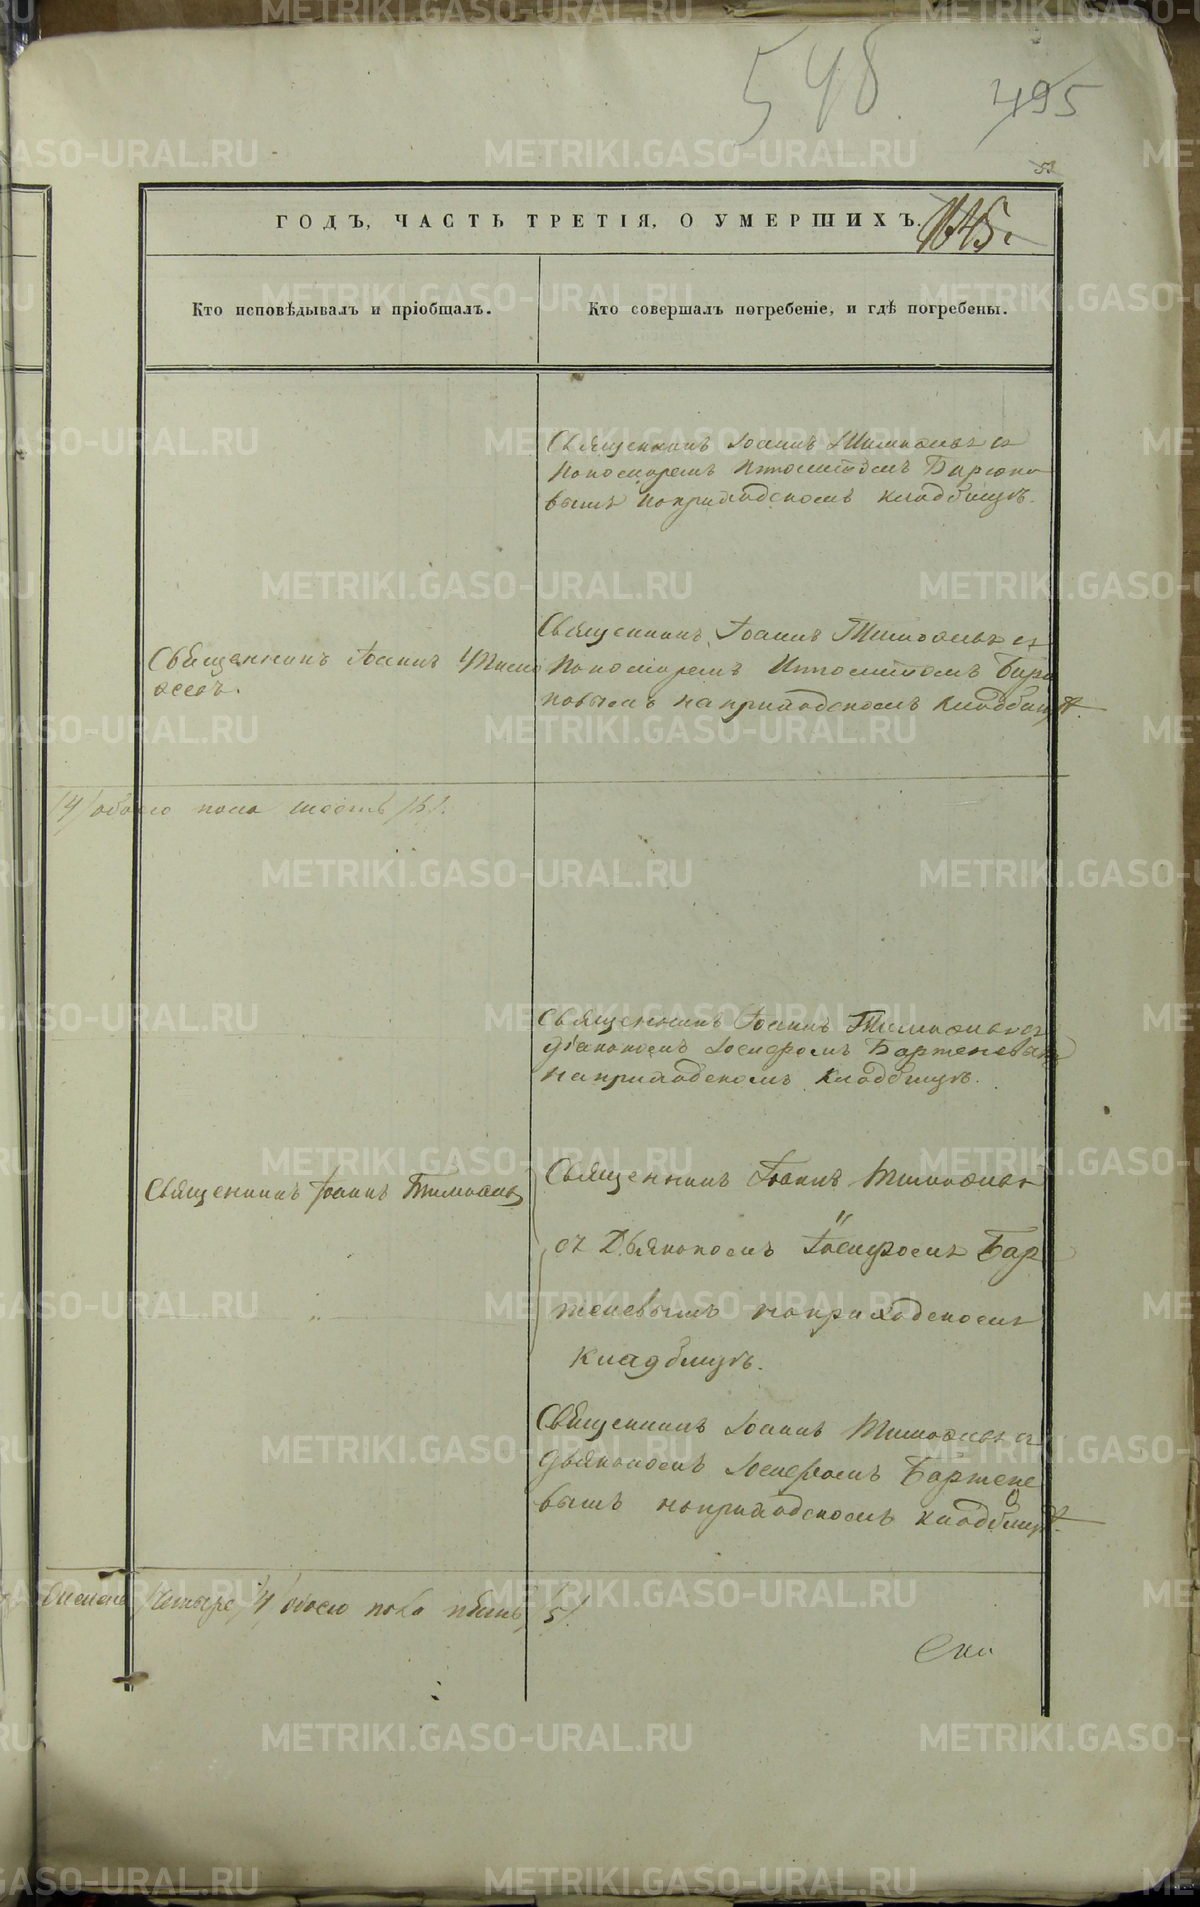 548
495
53
ГОДЪ, ЧАСТЬ ТРЕТІЯ, О УМЕРШИХЪ.
1845.
Кто исповѣдывалъ и пріобщалъ.
Кто совершалъ погребеніе, и гдѣ погребены.
Священникъ Іоаннъ Тимофѣевъ съ
пономаремъ Ипполитомъ Бирюко
вымъ на приходскомъ кладбищѣ.
Священникъ Іоаннъ Тимо
фѣевъ.
Священникъ Іоаннъ Тимофѣевъ съ
пономаремъ Ипполитомъ Бирю
ковымъ на приходскомъ кладбищѣ.
/4/ обоего пола шесть /6/.
Священникъ Іоаннъ Тимофѣевъ съ
діакономъ Іосифомъ Бартеневымъ
на приходскомъ кладбищѣ.
Священникъ Іоаннъ Тимофѣевъ
Священникъ Іоаннъ Тимофѣевъ
съ Дьякономъ Іосифомъ Бар
теневымъ на приходскомъ
кладбищѣ.
Священникъ Іоаннъ Тимофѣевъ съ
дьякономъ Іосифомъ Бартене
вымъ на приходскомъ кладбищѣ.
четыре /4/ обоего пола пять /5/.
METRIKI.GASO-URAL.RU